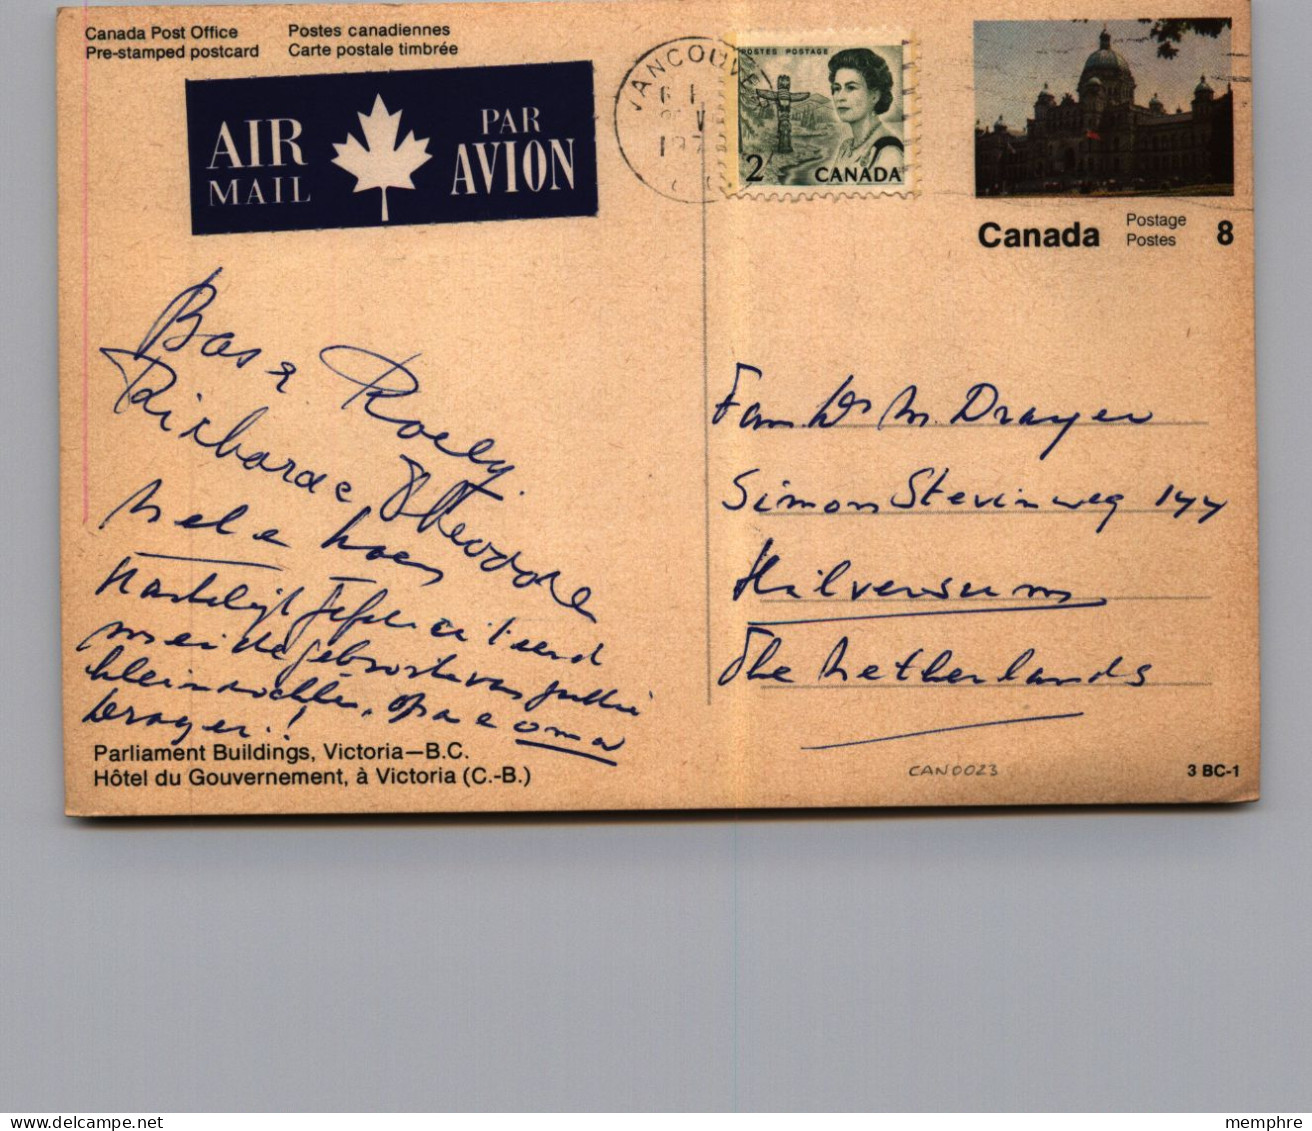 Canada Post Office
Pre-stamped postcard
Postes canadiennes
Carte postale timbrée
AIR
MAIL
PAR
AVION
VANCOUVER
197
POSTES POSTAGE
2
CANADA
Canada
Postage
Postes
8
Bas &
Roely.
Richard &
Theodore
hele hoes
Hartelijk gefeliciteerd
met de geboorte van jullie
kleindochter, opa e oma
Drayer!!
Fam. Drs M. Drayer
Simon Stevinweg 177
Hilversum
The Netherlands
Parliament Buildings, Victoria—B.C.
Hôtel du Gouvernement, à Victoria (C.-B.)
CAN0023
3 BC-1
memphre